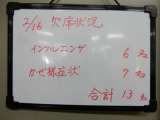 2/16 欠席状況
インフルエンザ 6名
かぜ様症状 7名
合計 13名